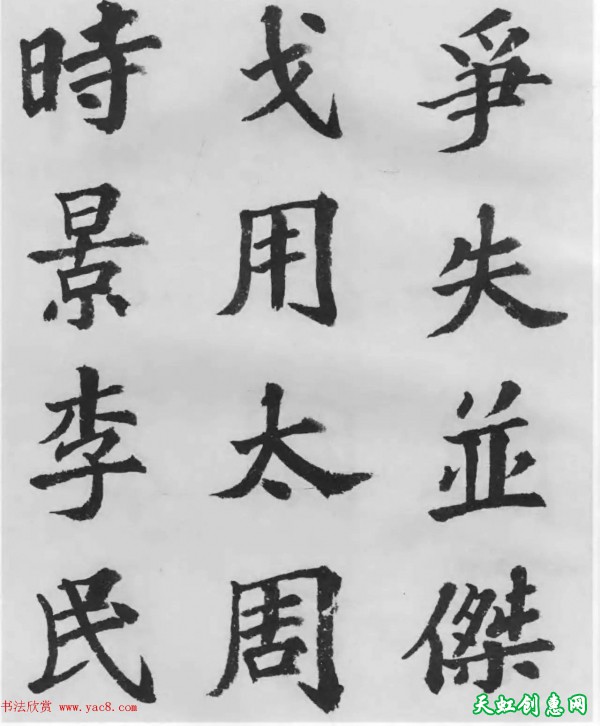 爭失並傑
戈用太周
時景李民
书法欣赏 www.yac8.com
天虹创惠网